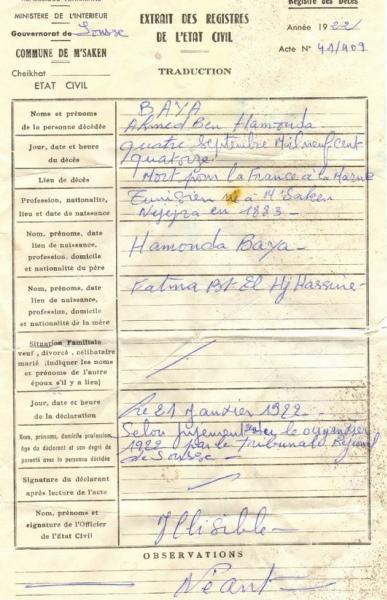 MINISTERE DE L'INTERIEUR
Gouvernorat de Sousse
COMMUNE DE M'SAKEN
Cheikhat
ETAT CIVIL
EXTRAIT DES REGISTRES
DE L'ETAT CIVIL
TRADUCTION
Registre des Décès
Année 1922/
Acte N° 41/909
Noms et prénoms
de la personne décédée
BAYA
Ahmed Ben Hamouda
Jour, date et heure
du décès
quatre Septembre Mil neuf cent
quatorze
Lieu de décès
Mort pour la France à la Marne
Profession, nationalité,
lieu et date de naissance
Tunisien né à M'Saken
en 1883 -
Nom, prénoms, date
lieu de naissance,
profession, domicile
et nationalité du père
Hamouda Baya -
Nom, prénoms, date
lieu de naissance,
profession, domicile
et nationalité de la mère
Fatma Bt El Hj Hassine -
Situation Familiale
veuf, divorcé, célibataire
marié (indiquer les noms
et prénoms de l'autre
époux s'il y a lieu)
Jour, date et heure
de la déclaration
Le 21 Janvier 1922 -
Nom, prénoms, domicile profession,
âge du déclarant et son degré de
parenté avec la personne décédée
Selon jugement le
1922 par le Tribunal Régional
de Sousse -
Signature du déclarant
après lecture de l'acte
Nom, prénoms et
signature de l'Officier
de l'Etat Civil
Illisible -
OBSERVATIONS
Néant -